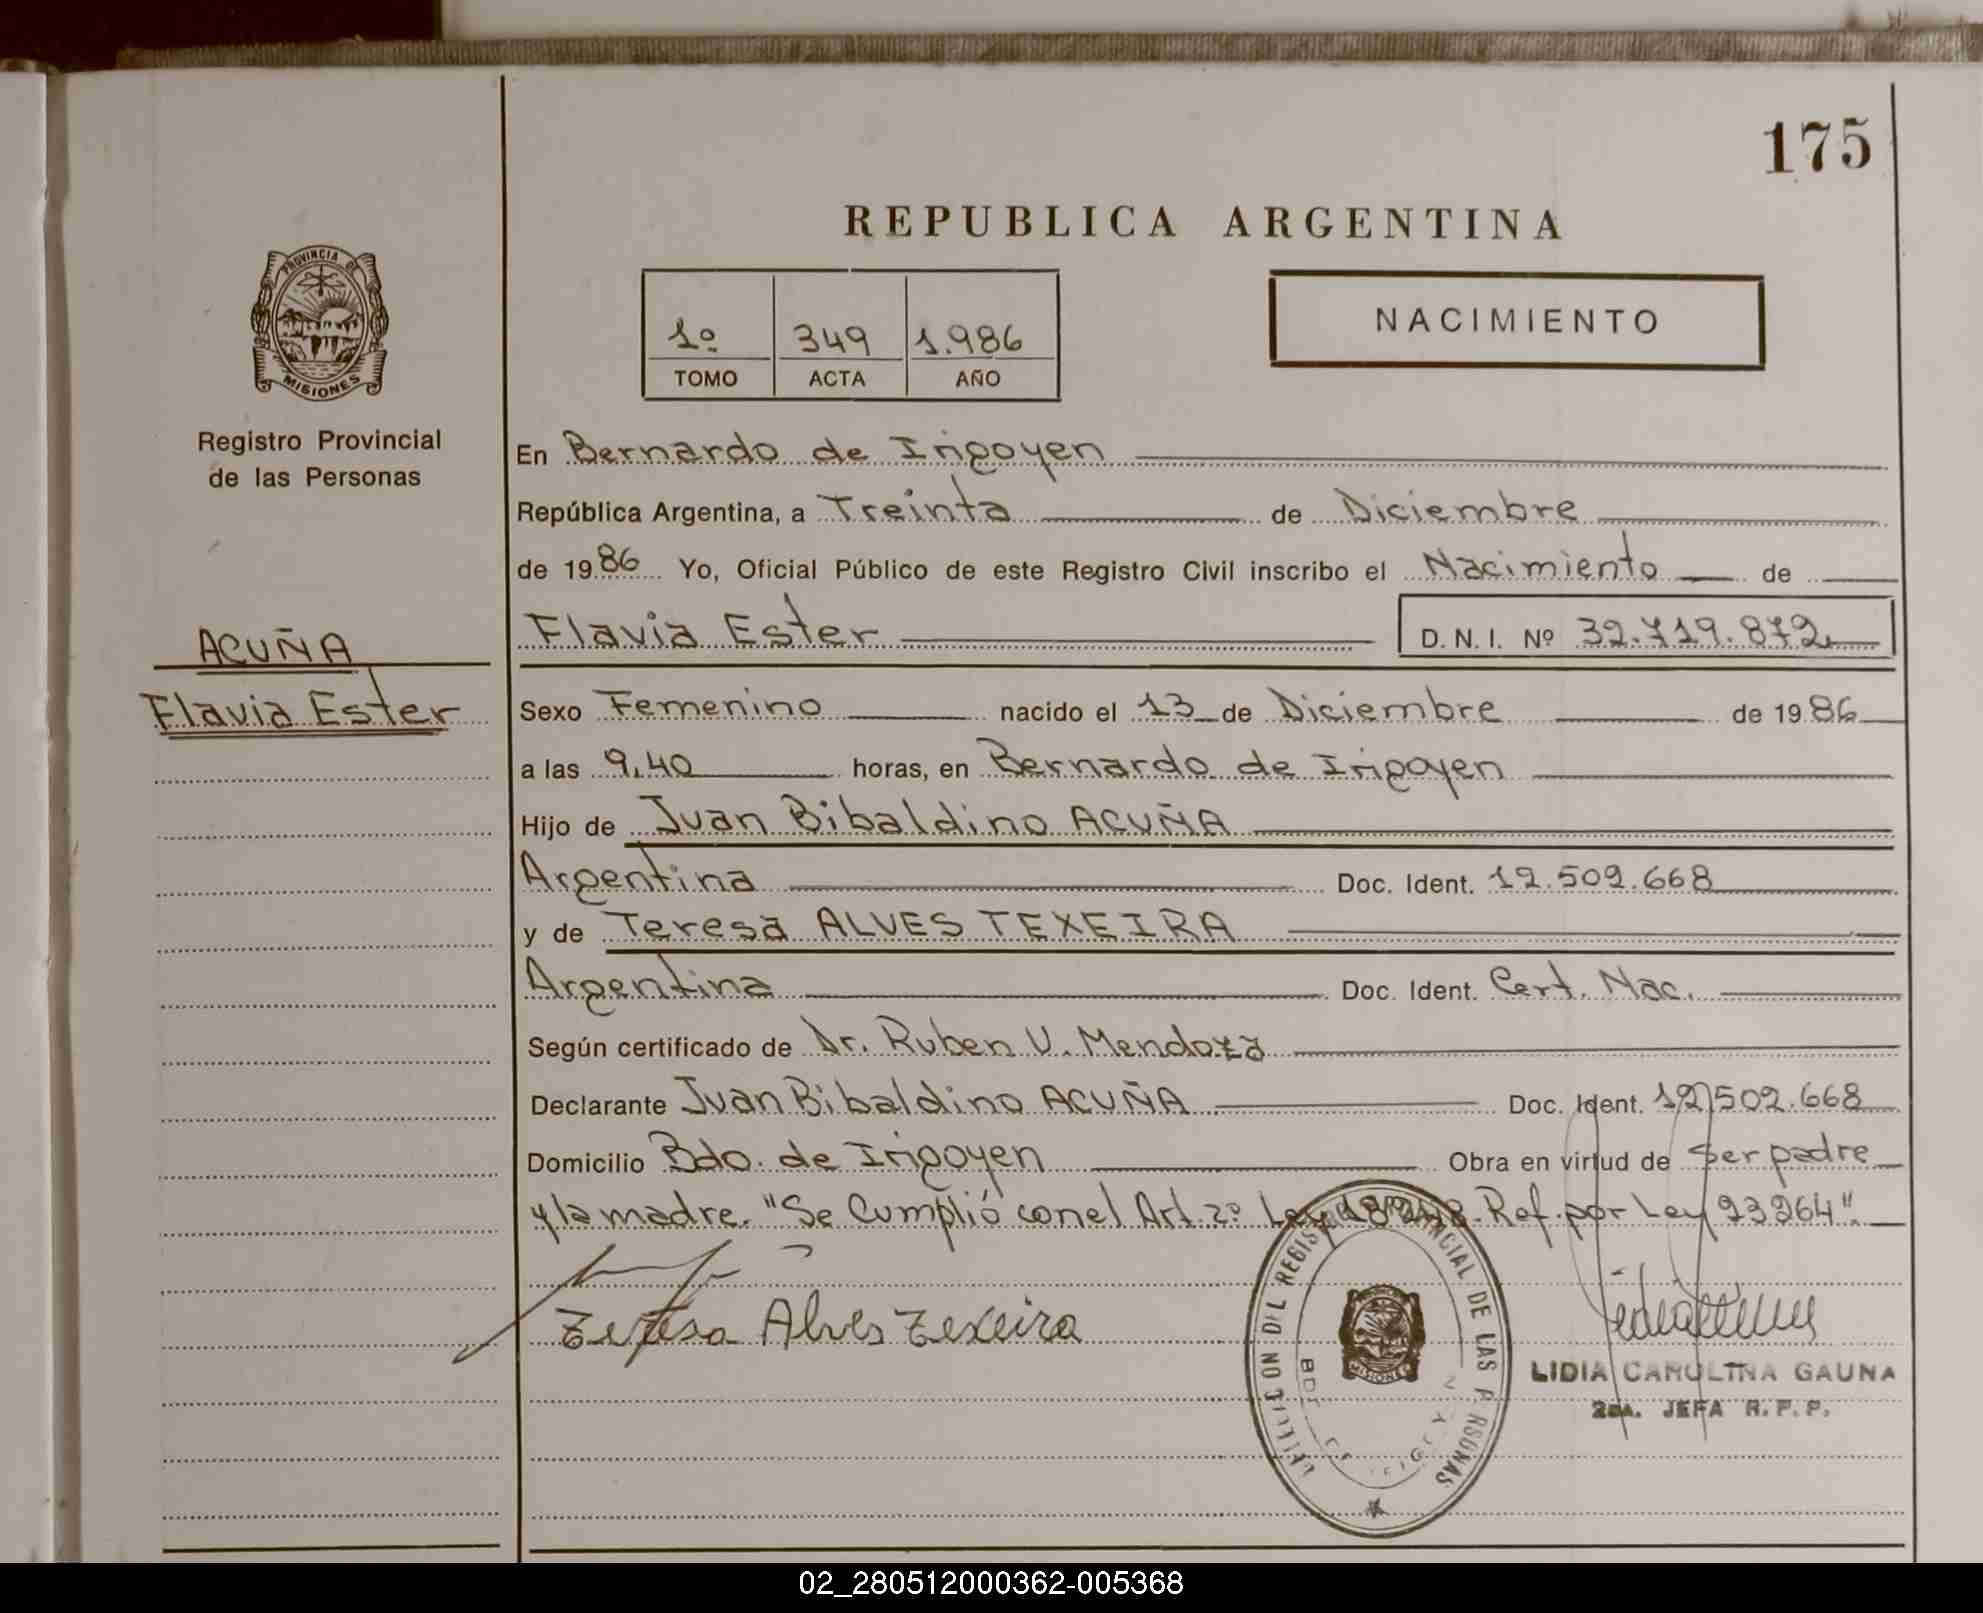 175
REPUBLICA ARGENTINA
PROVINCIA DE
MISIONES
Registro Provincial
de las Personas
1º 349 1.986
TOMO ACTA AÑO
NACIMIENTO
En Bernardo de Irigoyen
República Argentina, a Treinta de Diciembre
de 1986 Yo, Oficial Público de este Registro Civil inscribo el Nacimiento de
Flavia Ester D. N. I. Nº 32.719.872
ACUÑA
Flavia Ester
Sexo Femenino nacido el 13 de Diciembre de 1986
a las 9,40 horas, en Bernardo de Irigoyen
Hijo de Juan Bibaldino ACUÑA
Argentina Doc. Ident. 12.502.668
y de Teresa ALVES TEXEIRA
Argentina Doc. Ident. Cert. Nac.
Según certificado de Dr. Ruben V. Mendoza
Declarante Juan Bibaldino ACUÑA Doc. Ident. 12.502.668
Domicilio Bdo. de Irigoyen Obra en virtud de ser padre
y la madre. "Se Cumplió con el Art. 2º Ley 18248. Ref. por Ley 23264".
Teresa Alves Texeira
DEL REGISTRO PROVINCIAL DE LAS PERSONAS
MISIONES
LIDIA CAROLINA GAUNA
2da. JEFA R. P. P.
02_280512000362-005368